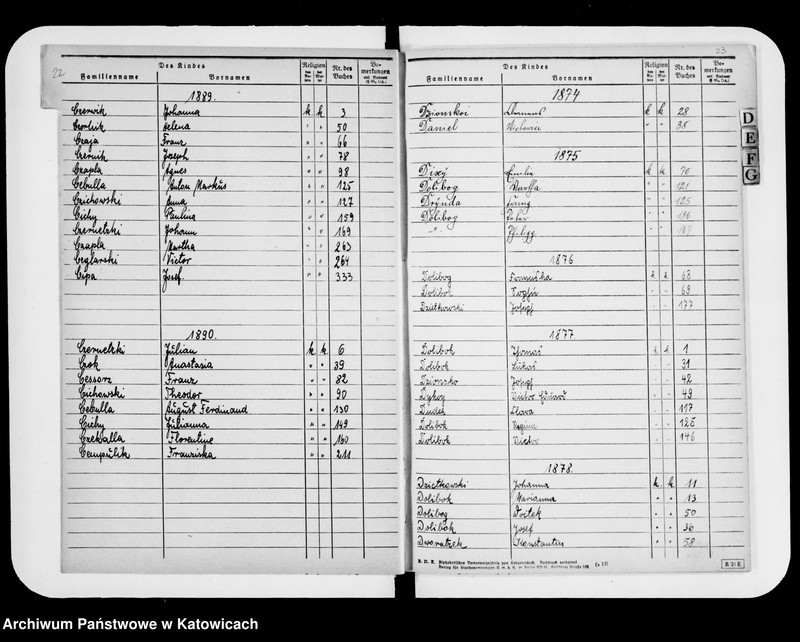 22
Des Kindes
Familienname Vornamen Religion Nr. des Buches Bemerkungen
1889.
Czerwik Johanna k k 3
Helena " " 50
Czaja Franz " " 66
Czernik Joseph " " 78
Czapla Agnes " " 98
Cebulla Anton Markus " " 125
Czichowski Anna " " 127
Cichy Paulina " " 159
Czernetzki Johann " " 169
Czapla Martha " " 263
Ceglarski Victor " " 264
Cipa Josef. " " 333
1890.
Czernetzki Julian k k 6
Czok Anastasia " " 39
Cessarz Franz " " 82
Cichowski Theodor " " 90
Cebulla August Ferdinand " " 130
Cichy Julianna " " 149
Czekalla Florentine " " 160
Czempulik Franziska " " 211
23
Des Kindes
Familienname Vornamen Religion Nr. des Buches Bemerkungen
1874
Dzionskoi Clemens k k 28
Daniel " " 38
1875
Dixy Emilie k k 70
Dolibog Martha " " 121
Drynda " " 125
Dolibog Peter " " 136
-"- Philipp " "
1876
Dolibog Franziska k k 68
Dolibok Sophie " " 69
Dzietkowski Joseph " " 177
1877
Dolibok Thomas k k 1
Dolibok Lukas " " 31
Dzionsko Joseph " " 42
Victor Eduard " " 49
Dudek Clara " " 117
Dolibok Regina " " 125
Dolibok Victor " " 146
1878.
Dzietkowski Johanna k. k. 11
Dolibok Marianna " " 13
Dolibog Woitek " " 50
Dolibok Josef " " 36
Dworatzek Konstantin " " 58
D
E
F
G
R 21 E
Archiwum Państwowe w Katowicach